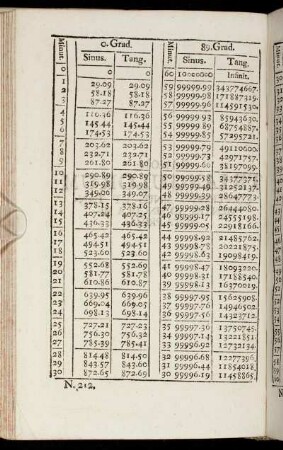 0. Grad. 89. Grad.
Minut. Sinus. Tang. Minut. Sinus. Tang.
0 0 0 60 10000000 Infinit.
1 29.09 29.09 59 99999.99 343774667.
2 58.18 58.18 58 99999.98 171887319.
3 87.27 87.27 57 99999.96 114591530.
4 116.36 116.36 56 99999.93 85943630.
5 145.44 145.44 55 99999.89 68754887.
6 174.53 174.53 54 99999.85 57295721.
7 203.62 203.62 53 99999.79 49110600.
8 232.71 232.71 52 99999.73 42971757.
9 261.80 261.80 51 99999.66 38197099.
10 290.89 290.89 50 99999.58 34377371.
11 319.98 319.98 49 99999.49 31252137.
12 349.06 349.07 48 99999.39 28647773.
13 378.15 378.16 47 99999.28 26444080.
14 407.24 407.25 46 99999.17 24555198.
15 436.33 436.33 45 99999.05 22918166.
16 465.42 465.42 44 99998.92 21485762.
17 494.51 494.51 43 99998.78 20221875.
18 523.60 523.60 42 99998.63 19098419.
19 552.68 552.69 41 99998.47 18093220.
20 581.77 581.78 40 99998.31 17188540.
21 610.86 610.87 39 99998.13 16370019.
22 639.95 639.96 38 99997.95 15625908.
23 669.04 669.05 37 99997.76 14946502.
24 698.13 698.14 36 99997.56 14323712.
25 727.21 727.23 35 99997.36 13750745.
26 756.30 756.32 34 99997.14 13221851.
27 785.39 785.41 33 99996.92 12732134.
28 814.48 814.50 32 99996.68 12277396.
29 843.57 843.60 31 99996.44 11854018.
30 872.65 872.69 30 99996.19 11458865.
N. 212.